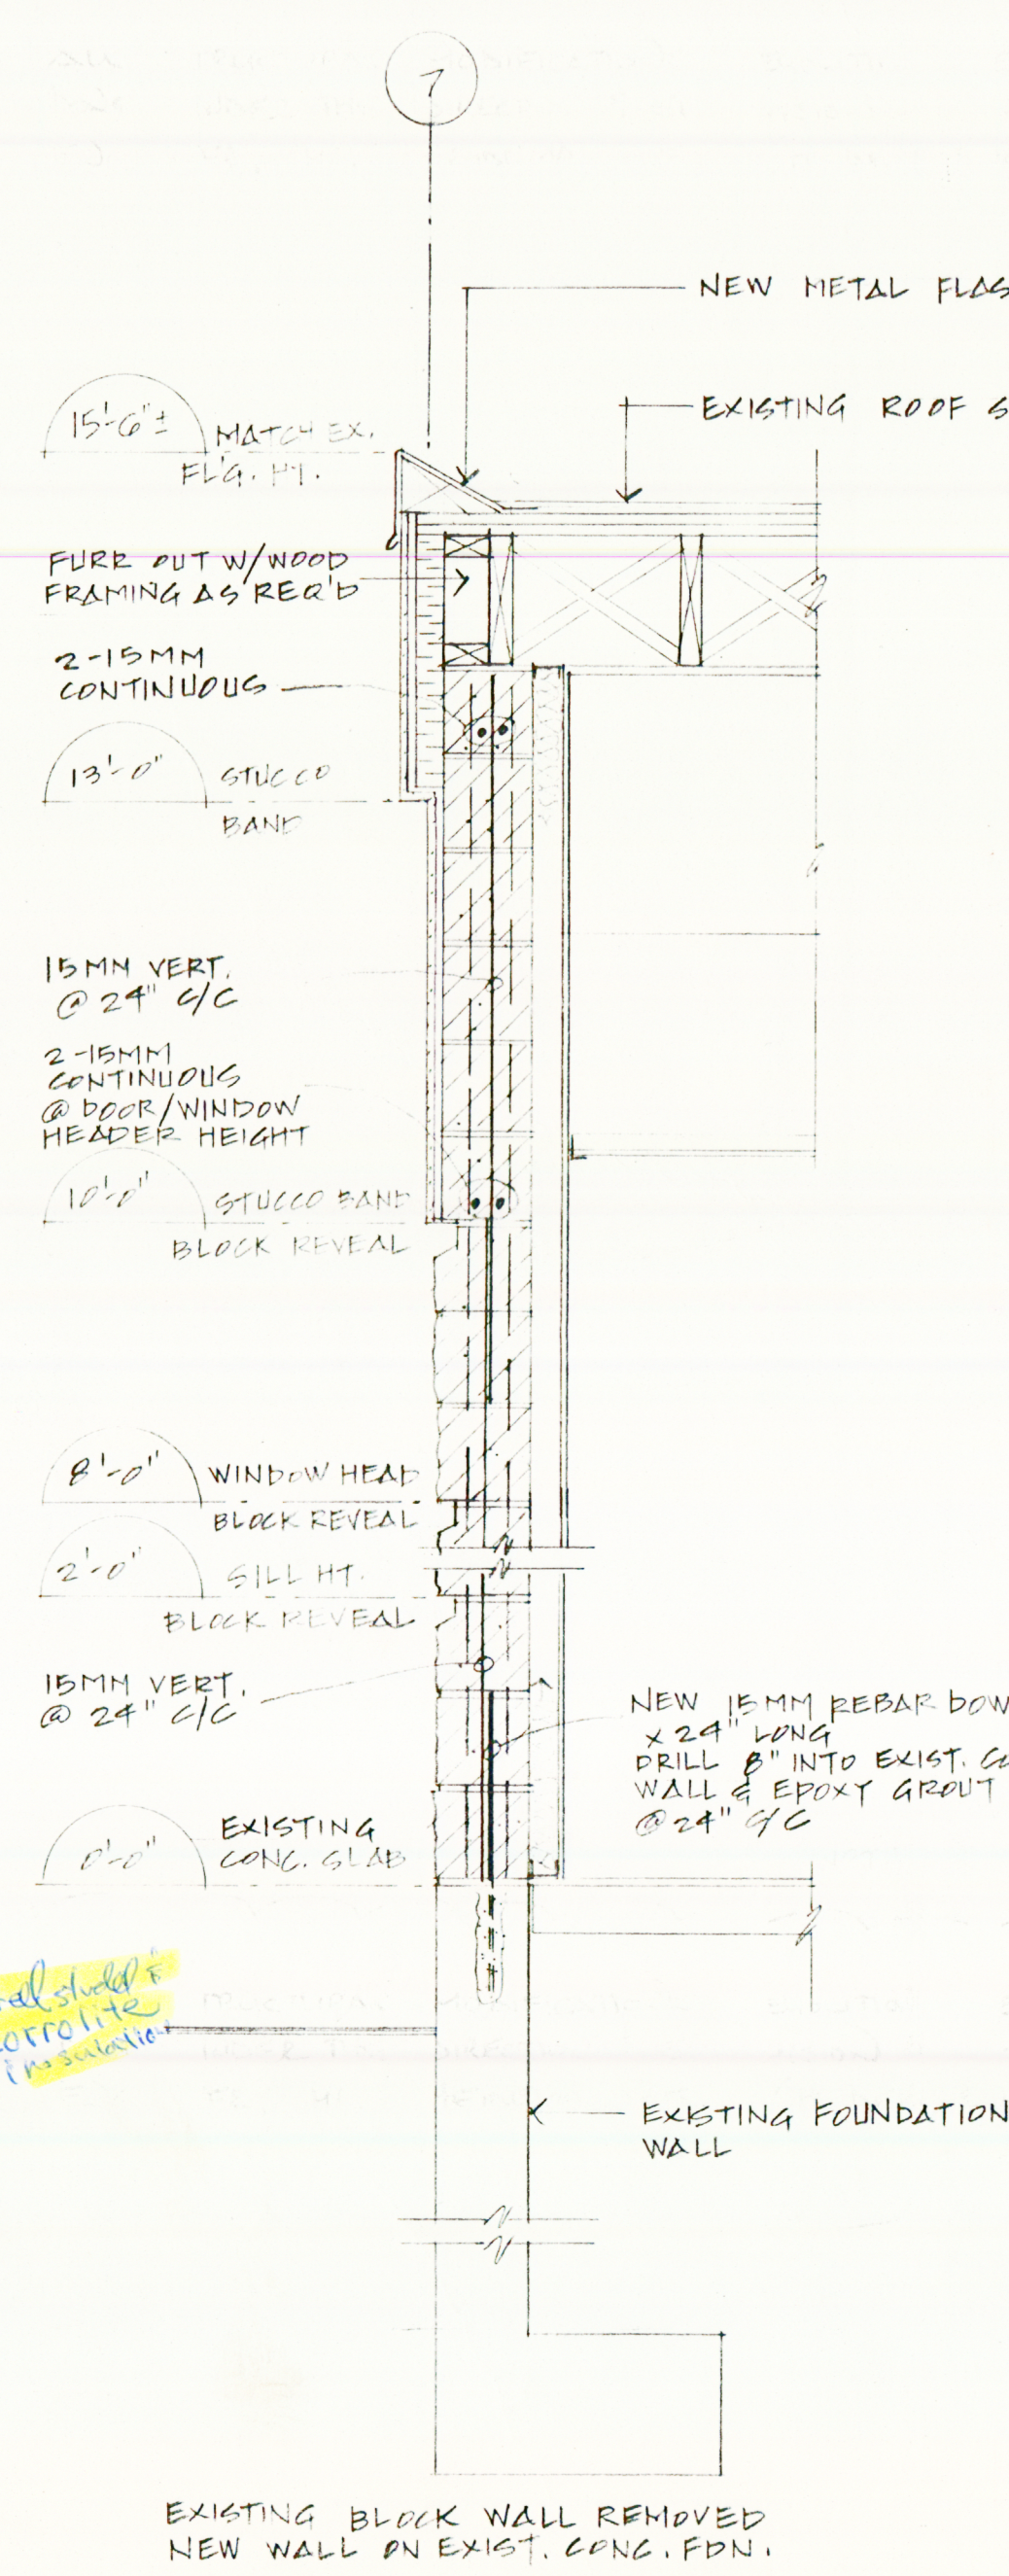 7
NEW METAL FLAS
EXISTING ROOF S
15'-6"±
MATCH EX.
FL'G. HT.
FURR OUT W/WOOD
FRAMING AS REQ'D
2-15MM
CONTINUOUS
13'-0"
STUCCO
BAND
15MM VERT.
@ 24" C/C
2-15MM
CONTINUOUS
@ DOOR/WINDOW
HEADER HEIGHT
10'-0"
STUCCO BAND
BLOCK REVEAL
8'-0"
WINDOW HEAD
BLOCK REVEAL
2'-0"
SILL HT.
BLOCK REVEAL
15MM VERT.
@ 24" C/C
NEW 15MM REBAR DOW
x 24" LONG
DRILL 8" INTO EXIST. CO
WALL & EPOXY GROUT
@ 24" C/C
0'-0"
EXISTING
CONC. SLAB
insulation
EXISTING FOUNDATION
WALL
EXISTING BLOCK WALL REMOVED
NEW WALL ON EXIST. CONC. FDN.